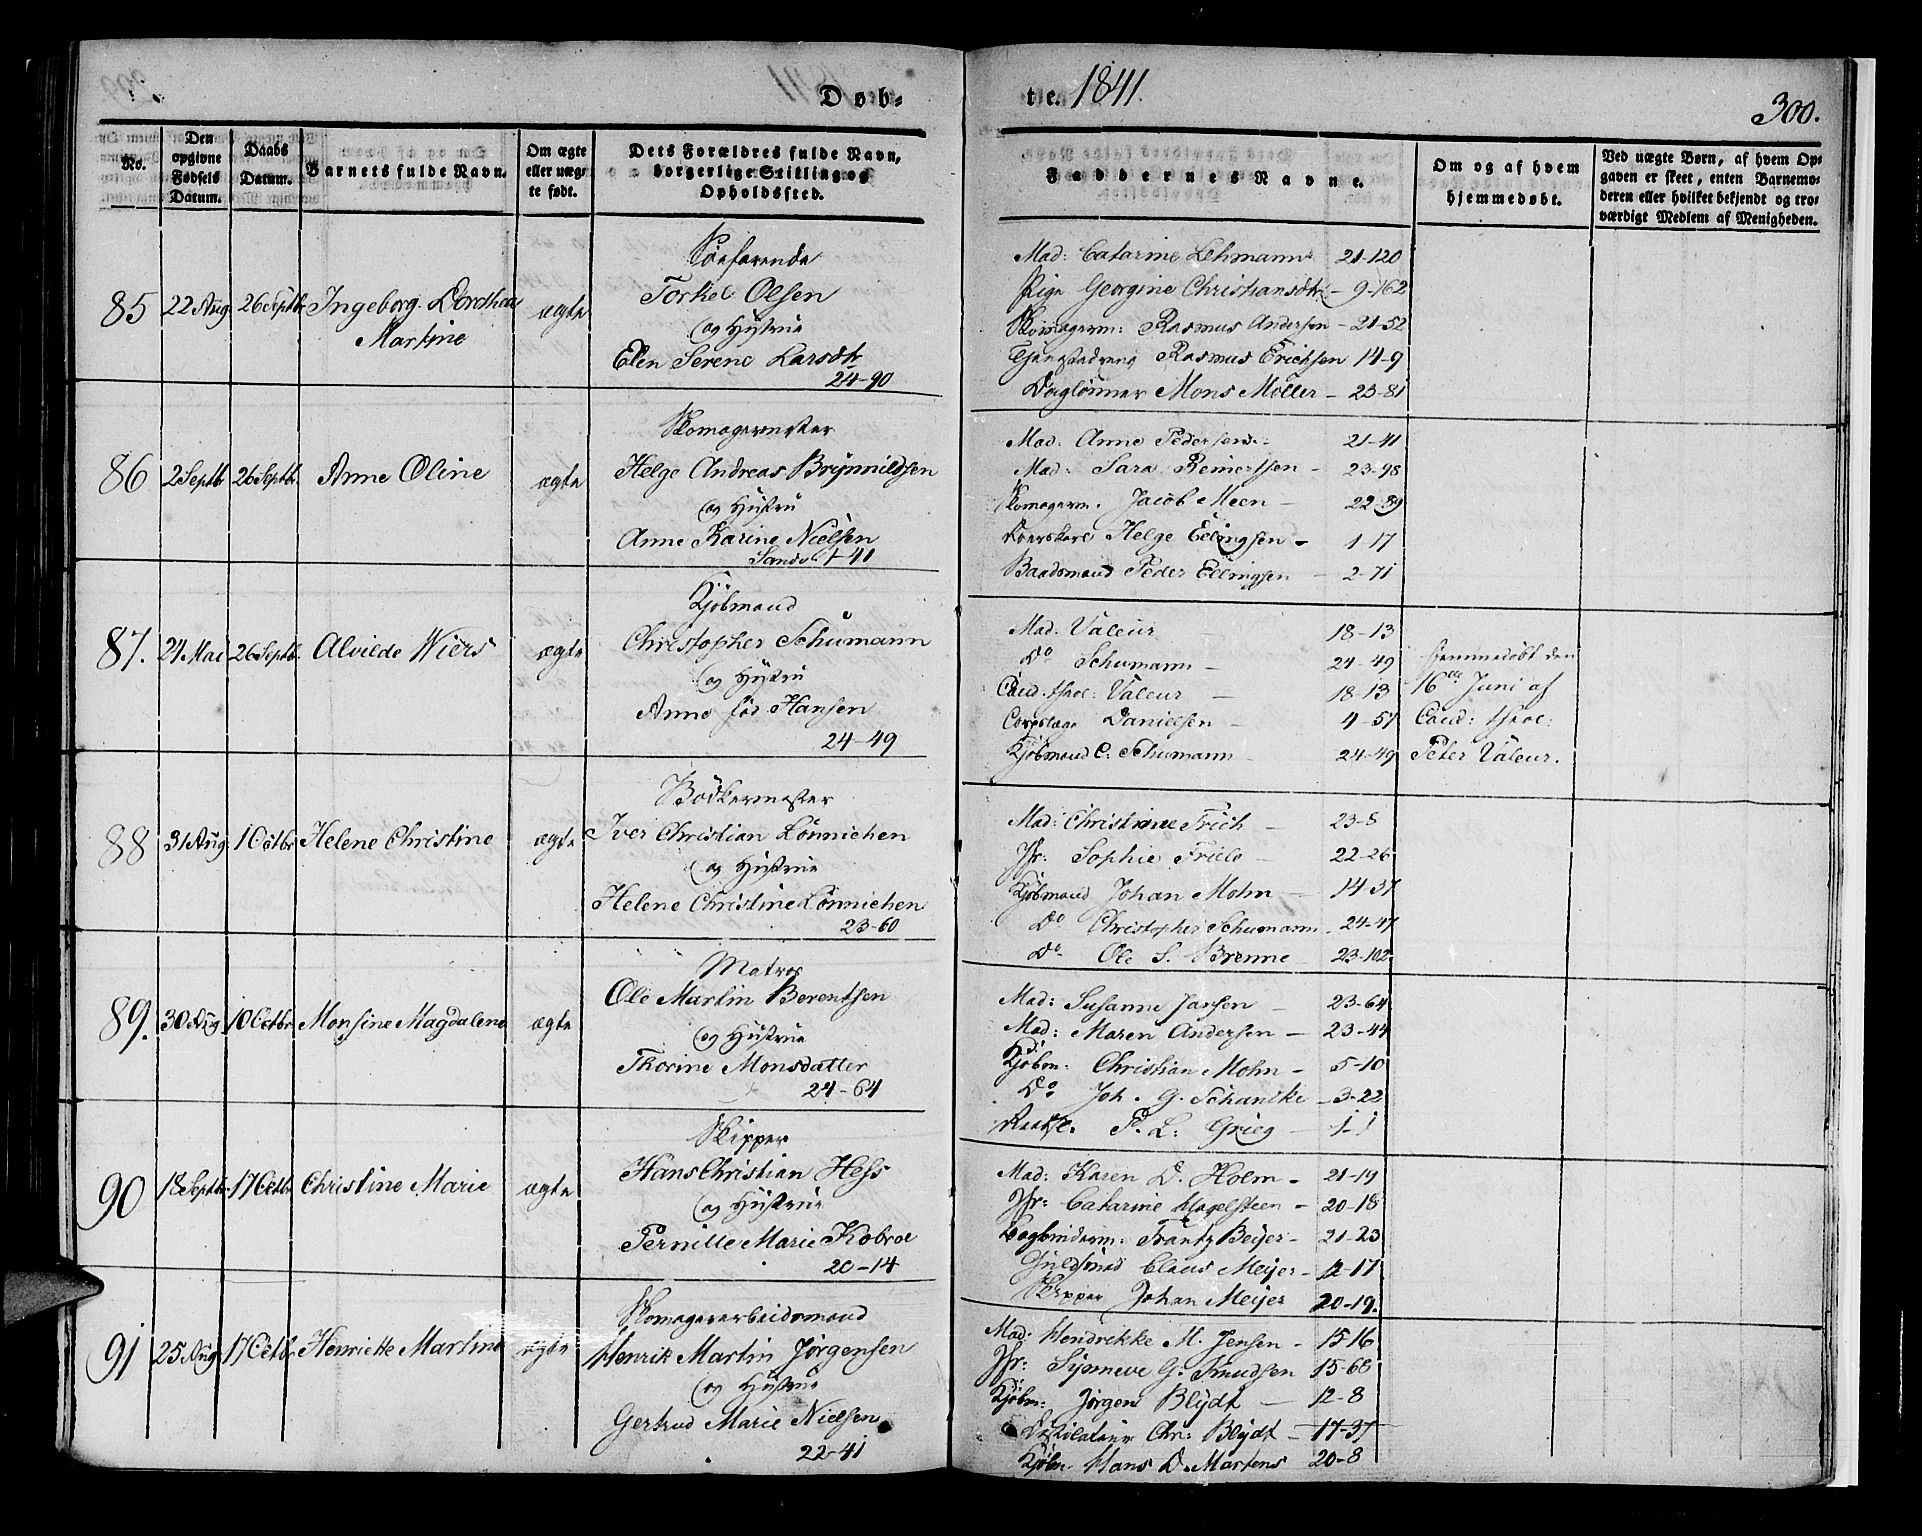 Døb-
te. 1841.
300.
No.
Den opgivne Fødsels Datum.
Daabs Datum.
Barnets fulde Navn.
Om ægte eller uægte født.
Dets Forældres fulde Navn, borgerlige Stilling og Opholdssted.
Faddernes Navne.
Om og af hvem hjemmedøbt.
Ved uægte Børn, af hvem Opgaven er skeet, enten Barnemoderen eller hvilket bekjendt og troværdigt Medlem af Menigheden.
85 22 Aug 26 Septbr Ingeborg Dordthea Martine ægte
Søefarende
Torkel Olsen
og Hustrue
Elen Serene Larsdtr
24-90
Mad: Catarine Lehmann 21-120
Pige Georgine Christiansdtr - 9-162
Skomagerm: Rasmus Andersen - 21-52
Rasmus Erichsen 14-9
Daglønner Mons Møller - 23-81
86 2 Septb 26 Septb. Anne Oline ægte
Skomagermester
Helge Andreas Brynnildsen
og Hustru
Anne Karine Nielsen
Sandv. + 41
Mad: Anne Pedersen 21-41
Mad: Sara Reinertsen - 23-98
Skomagerm. Jacob Meen - 22-89
Helge Ellingsen - 1-17
Baadsmand Peder Ellingsen - 2-71
87. 24 Mai 26 Septb. Alvilde Wiers ægte
Kjøbmand
Christopher Schumann
og Hustru
Anne fød Hansen
24-49
Mad: Valeur 18-13
Do Schumann - 24-49
Cand. theol: Valeur - 18-13
Corpslæge Danielsen - 4-57
Kjøbmand C: Schumann 24-49
hjemmedøbt den
16de Juni af
Cand: theol:
Peter Valeur.
88 31 Aug 10 Octbr Helene Christine ægte
Bødkermester
Iver Christian Lønnichen
og Hustrue
Helene Christine Lønnichen
23-60
Mad: Christine Frich - 23-8
Jfr: Sophie Friele - 22-26
Kjøbmand Johan Mohn - 14-37
Do Christopher Schumann. 24-47
Do Ole S. Brenne - 23-102
89. 30 Aug. 10 Octbr Monsine Magdalene ægte
Matros
Ole Martin Berentsen
og Hustrue
Thorine Monsdatter
24-64
Mad: Susanne Jansen - 23-64
Mad: Maren Andersen - 23-44
Kjøbm: Christian Mohn - 5-10
Do Joh. G. Schantke - 3-22
P. L: Grieg - 1-1
90 18 Septbr. 17 Octbr Christine Marie ægte
Skipper
Hans Christian Hess
og Hustrue
Pernille Marie Kobroe
20-14
Mad: Karen D. Holm - 21-19
Jfr: Catarine Magelsteen - 20-18
Bogbinderm: Frantz Beyer - 21-23
Guldsmed Claus Meyer - 12-17
Skipper Johan Meyer 20-19.
91 25 Aug 17 Octbr. Henriette Martine ægte
Skomagerarbeidsmand
Henrik Martin Jørgensen
og Hustrue
Gertrud Marie Nielsen
22-41
Mad: Hendrikke M. Jensen - 15-16
Jfr: Synneve G. Knudsen 15-68
Kjøbm: Jørgen Blydt - 12-8
Destilateur Chr: Blydt - 17-37
Kjøbm. Hans D. Martens 20-8